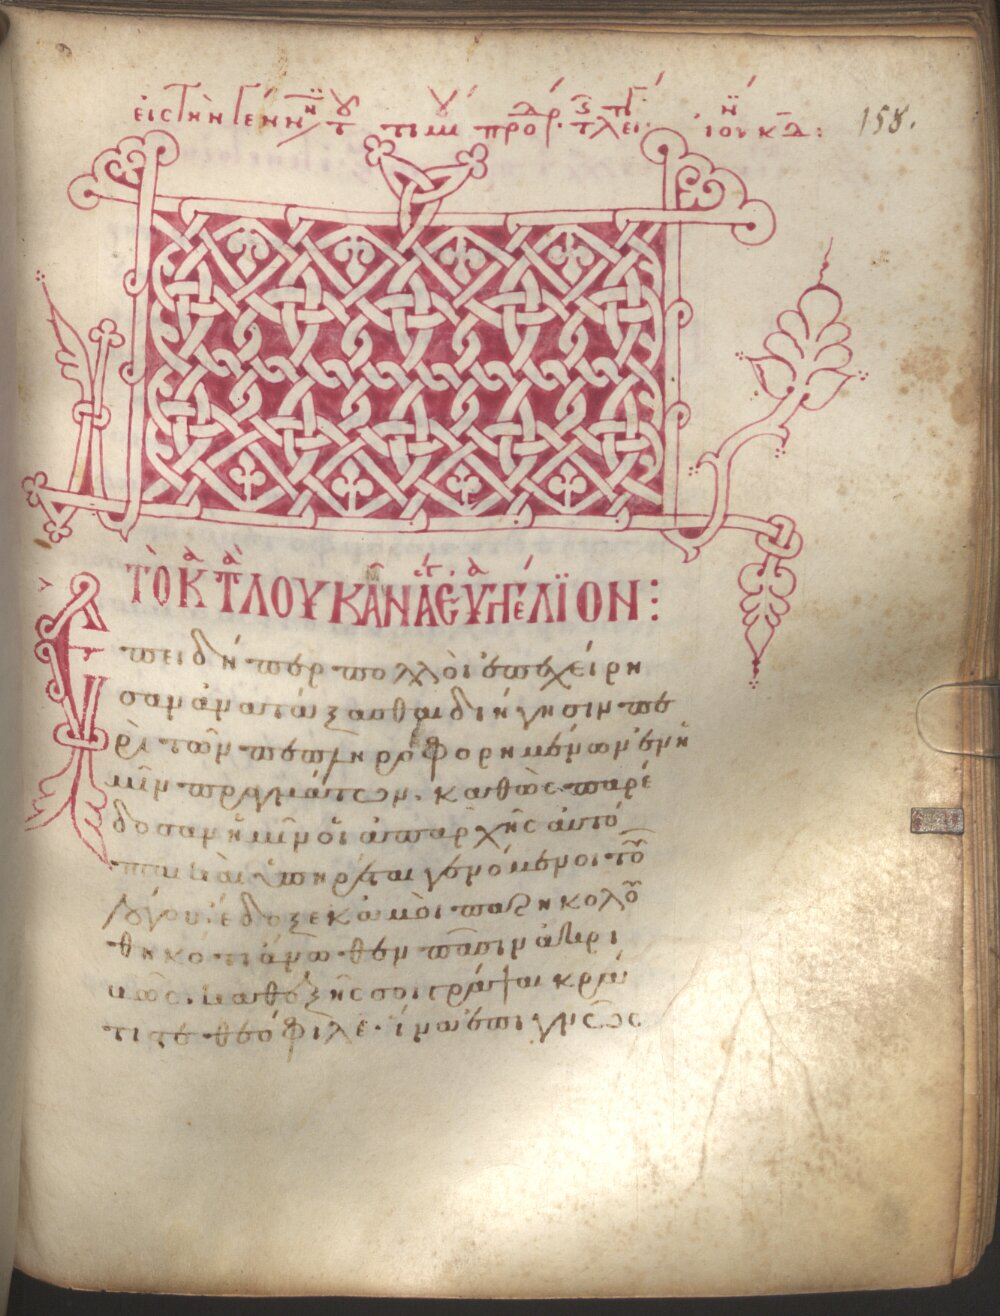 εἰς τὴν γέννη τ τιμ προδρ. τλει. ἰουν κδ: 158.
ΤὸΚᾺΤᾺΛΟΥΚΑ̂ΝἍΓ.ΕΥ̓ΑΓΓΈΛΪΟΝ:
Ἐπειδήπερ πολλοὶ ἐπεχείρη
σαν ἀνατάξασθαι διήγησιν πε
ρὶ τῶν πεπληροφορημένων ἐν ἡ
μῖν πραγμάτων. καθὼς παρέ
δοσαν ἡμῖν οἱ ἀπαρχῆς αὐτό
πται καὶ ὑπηρέται γενόμενοι τοῦ
λόγου. ἔδοξε κἀμοὶ παρηκολου
θηκότι ἄνωθεν πᾶσιν ἀκρι
βῶς. καθεξῆς σοι γράψαι κρά
τιστε θεόφιλε. ἵνα ἐπιγνῶς